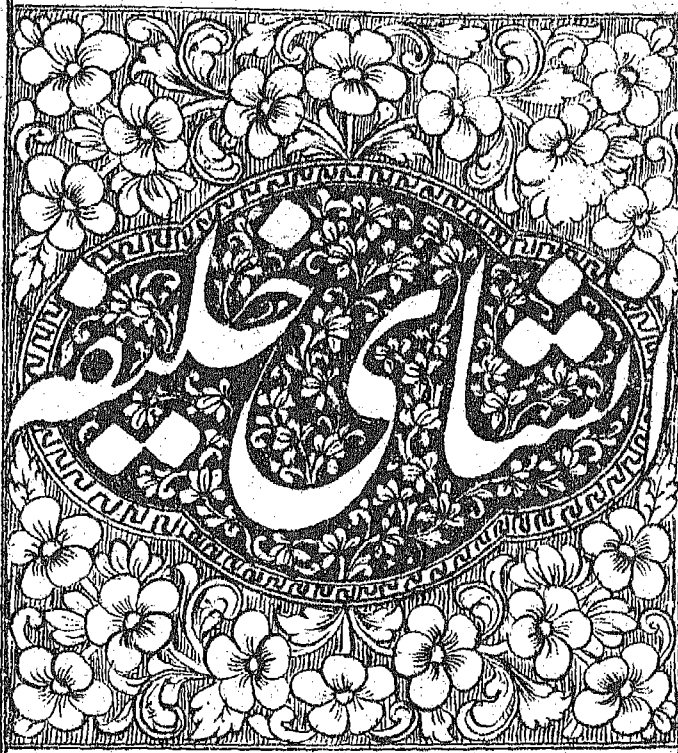 انشای خلیفه